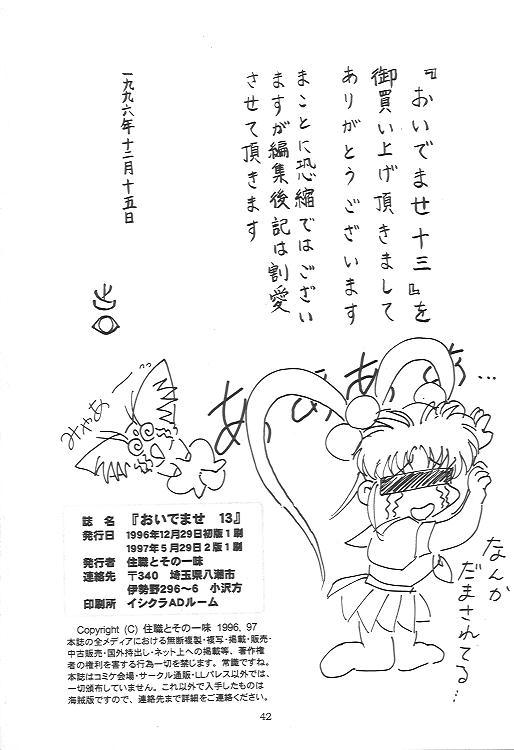 『おいでませ十三』を
御買い上げ頂きまして
ありがとうございます
まことに恐縮ではござい
ますが編集後記は割愛
させて頂きます
一九九六年十二月十五日
あぁあぁあぁ…
みゃあー
なんか
だまされてる…
誌 名 『おいでませ 13』
発行日 1996年12月29日初版1刷
1997年5月29日2版1刷
発行者 住職とその一味
連絡先 〒340 埼玉県八潮市
伊勢野296〜6 小沢方
印刷所 イシクラADルーム
Copyright (C) 住職とその一味 1996, 97
本誌の全メディアにおける無断複製・複写・掲載・販売・
中古販売・国外持出し・ネット上への掲載等、著作権
者の権利を害する行為一切を禁じます。常識ですね。
本誌はコミケ会場・サークル通販・LLパレス以外では、
一切頒布していません。これ以外で入手したものは
海賊版ですので、連絡先まで詳細をご連絡ください。
42